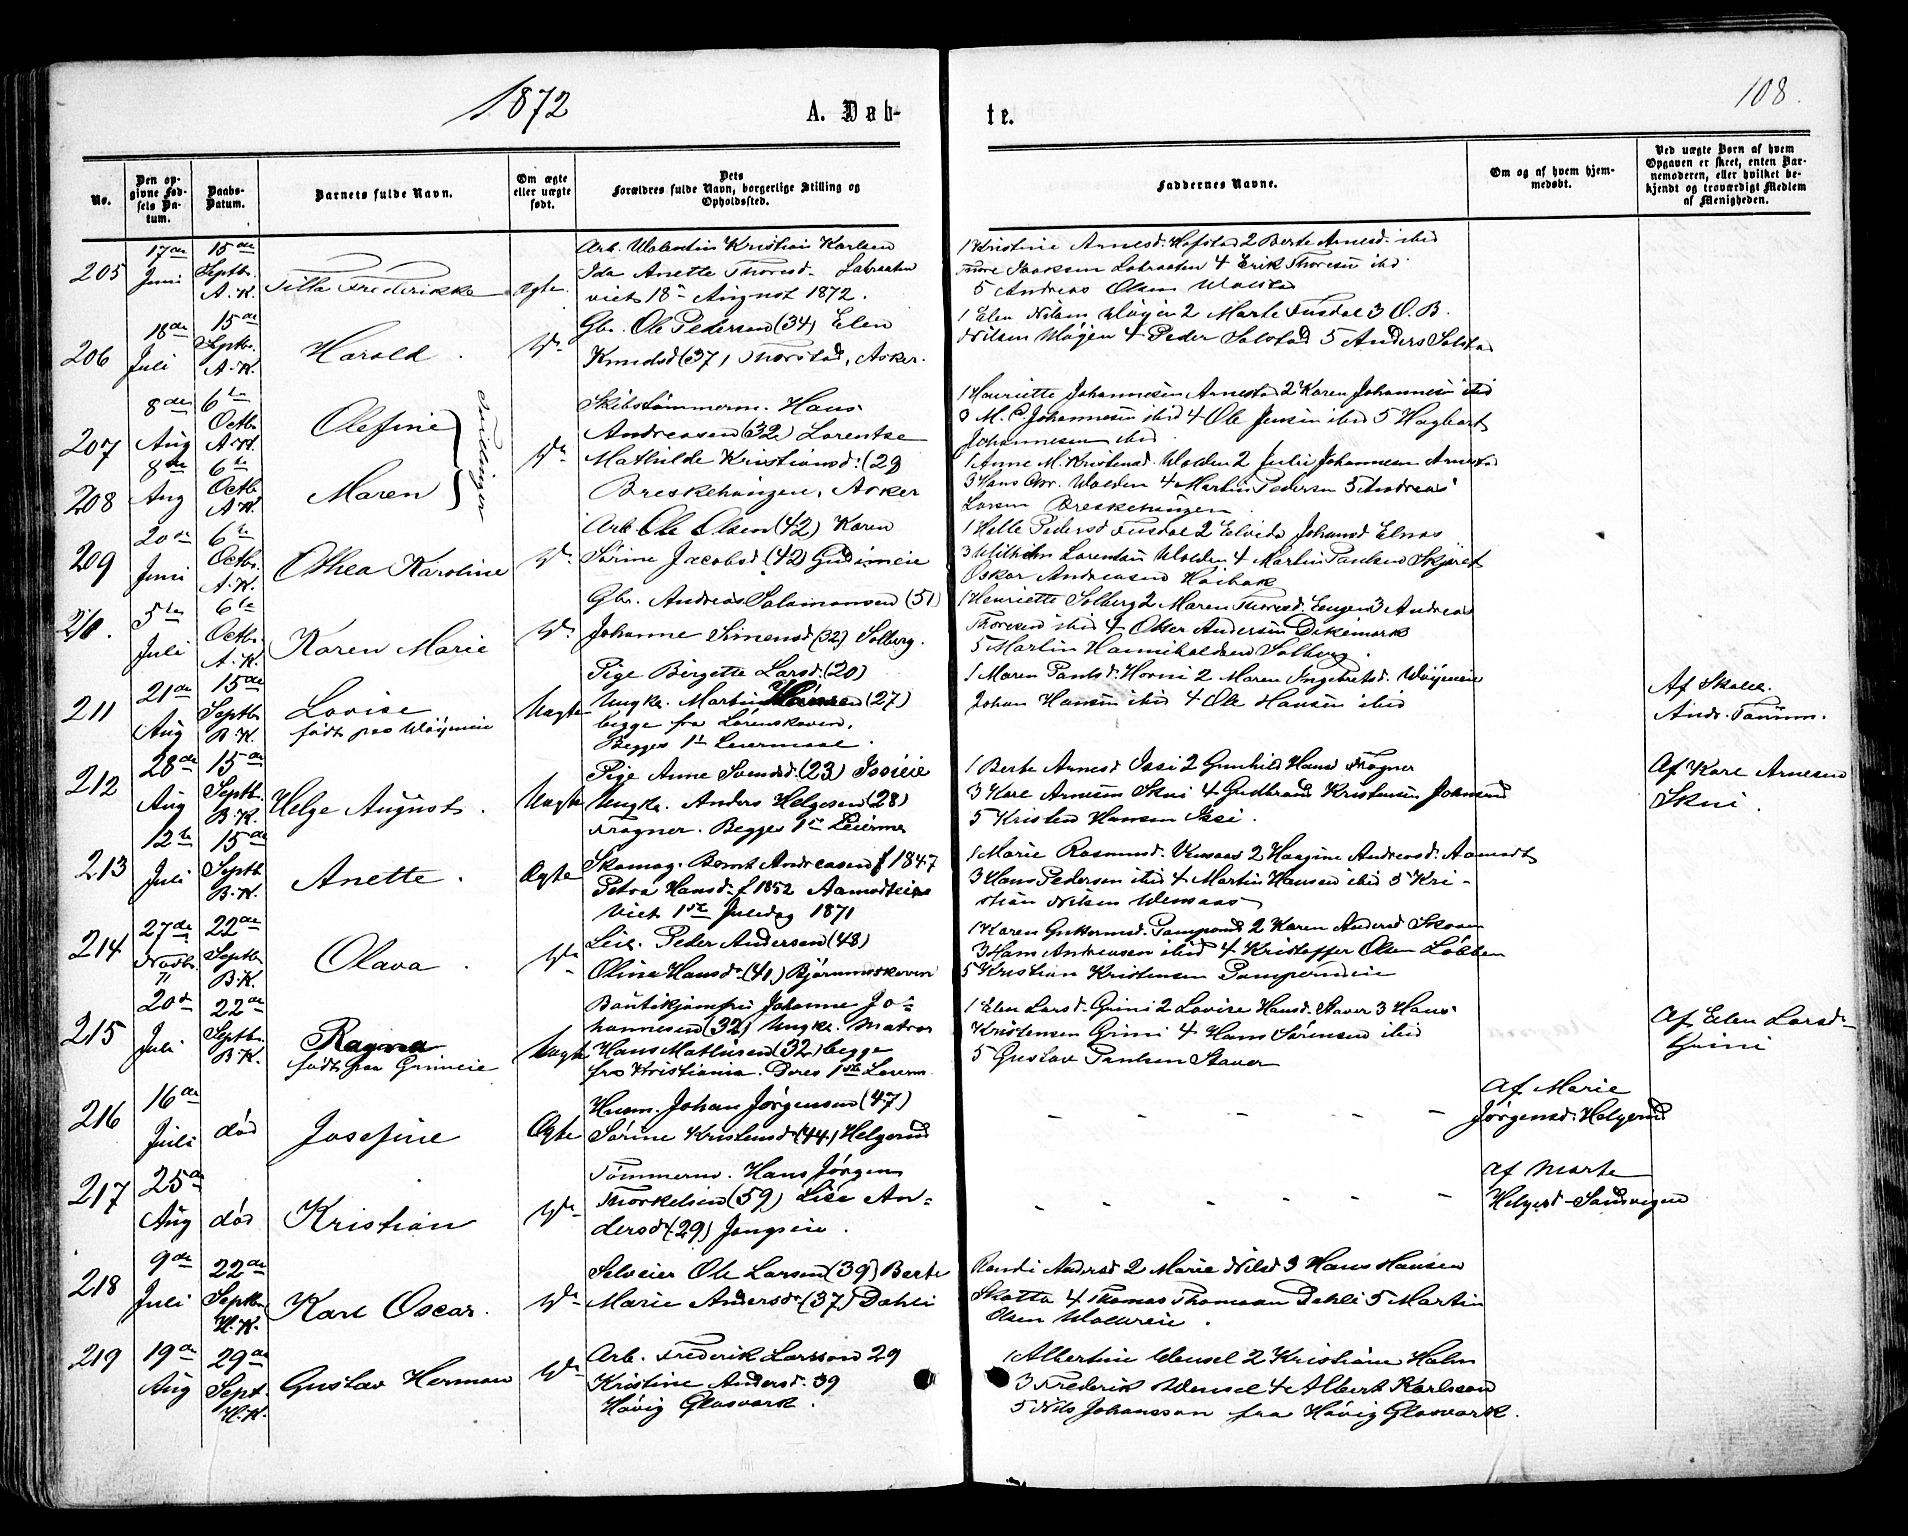 1872
A. Døb-
te.
108.
No.
Den op-
givne Fød-
sels Da-
tum.
Daabs-
Datum.
Barnets fulde Navn.
Om ægte
eller uægte
født.
Dets
Forældres fulde Navn, borgerlige Stilling og
Opholdssted.
Faddernes Navne.
Om og af hvem hjem-
medøbt.
Ved uægte Børn af hvem
Opgaven er skeet, enten Bar-
nemoderen, eller hvilket be-
kjendt og troværdigt Medlem
af Menigheden.
205
17de
Juni
15de
Septbr.
A.K.
Tilla Frederikke
ægte.
Arb. Valentin Kristian Karlsen
Ida Anette Thoresd.
viet 18de August 1872.
1 Kristine Arnesd. Hofstad 2 Berte Arnesd. ibid
Thore Isaksen 4 Erik Thoresen ibid
5 Andreas Olsen
206
18de
Juli
15de
Septbr.
A.K.
Harald.
Do
Gbr. Ole Pedersen (34) Elen
Knudsd (37) Thorstad, Asker.
1 Elen Nilsen Vøyen 2 Marte Tusdal 3 O.B.
Nilsen Vøyen 4 Peder Solstad 5 Anders Solstad
207
8de
Aug
6te
Octbr.
A.K.
Olefine
Tvillinger
Do
Skibstømmerm. Hans
Andreasen (32) Lorentse
Mathilde Kristiansd: (29
Breskehaugen, Asker
1 Henriette Johannesen Arnestad 2 Karen Johannesen ibid
3 M. C. Johannesen ibid 4 Ole Jensen ibid 5 Hagbart
Johannesen ibid
208
8de
Aug
6te
Octbr.
A.K.
Maren
1 Anne M. Kristensd. Volden 2 Julie Johannesen Arnestad
3 Hans Chr. Volden 4 Martin Pedersen 5 Andreas
Larsen Breskehaugen.
209
20de
Juni
6te
Octbr.
A.K.
Othea Karoline
Do
Arb. Ole Olsen (42) Karen
Sørine Jacobsd (42) Gudimeie
1 Helle Pedersd Tusdal 2 Elvida Johansd Elnas
3 Wilhelm Lorentsen Volden 4 Martin Paulsen Skjæret
Oskar Andreasen Høibak
210.
5te
Juli
6te
Octbr.
A.K.
Karen Marie
Do
Gbr. Andreas Salamonsen (51)
Johanne Simensd (32) Solberg.
1 Henriette Solberg 2 Maren Thoresd. Engen 3 Andreas
Thoresen ibid 4 Otter Andersen Dikemark
5 Martin Hannibaldsen Solberg.
211
21de
Aug
15de
Septbr
B.K.
Lovise
født paa Vøyeneie
Uægte
Pige Birgitte Larsd. (20)
Ungk. Martin Hansen (27)
begge fra Lørenskoven.
Begges 1st Leiermaal.
1 Maren Paulsd. Horni 2 Maren Ingebretsd. Vøyeneie
Johan Hansen ibid 4 Ole Hansen ibid
Af Skoll.
Andr. Tanum.
212
28de
Aug
15de
Septbr.
B.K.
Helge August.
Uægte
Pige Anne Svendsd. (23) Issieie
Ungk. Anders Helgesen (28)
Fragner. Begges 1st Leierm
1 Berte Arnesd Issi 2 Gunhild Hansd Fragner
3 Karl Arnesen Skui 4 Gudbrand Kristensen Johnsrud
5 Kristen Hansen Issi.
Af Karl Arnesen
Skui.
213
12te
Juli
15de
Septb
B.K.
Anette.
Ægte
Skomag. Bernt Andreasen f 1847
Petra Hansd. f 1852 Aamodteie
Viet 1ste Juledag 1871
1 Marie Rasmusd. Vensaas 2 Haagine Andreasd. Aamodt
3 Hans Pedersen ibid 4 Martin Hansen ibid 5 Kri-
stian Nilsen Vensaas
214
27de
Novbr.
22de
Septbr
B.K.
Olava.
Do
Lei. Peder Andersen (43)
Oline Hansd. (41) Bjørumskoven
1 Karen Guttormsd. Pamperud 2 Karen Andersd Skoven
3 Hans Andreasen ibid 4 Kristoffer Olsen Løkken
5 Kristian Kristensen Pamperudeie
215
20de
Juli
22de
Septbr
B.K.
Ragna
født paa Grinieie
Uægte
Bøutikjomfru Johanne Jo-
hannesen (32) Ungk. Matros
Hans Mathisen (32) begge
fra Kristiania. Deres 1ste Leierm.
1 Elen Larsd. Grini 2 Lovise Hansd. Staver 3 Hans
Kristensen Grini 4 Hans Sørensen ibid
5 Gustav Paulsen Staver
Af Elen Larsd.
Grini
216
16de
Juli
død
Josefine
Ægte
Husm. Johan Jørgensen (47)
Sørine Kristensd. (44) Helgerud
- - - - -
af Marie
Jørgensd. Helgerud
217
25de
Aug
død
Kristian
Do
Tømmerm. Hans Jørgen
Thorkelsen (59) Lise An-
dersd (29) Jongseie.
- - - - -
af Marte
Helgesd. Sandvigen
218
9de
Juli
22de
Septbr
H.K.
Karl Oscar.
Do
Selveier Ole Larsen (39) Berte
Marie Andersd. (37) Dahli
Randi Andersd 2 Marie Nilsd 3 Hans Hansen
Skotta 4 Thomas Thomasen Dahli 5 Martin
Olsen
219
19de
Aug
29de
Sept.
H.K.
Gustav Herman
Do
Arb. Frederik Larsson 29
Kristine Andersd. 39
Høvig Glasværk.
1 Albertine Wensel 2 Kristiane Holm
3 Frederik Wensel 4 Albert Karlsson
5 Nils Johansson fra Høvig Glasværk.